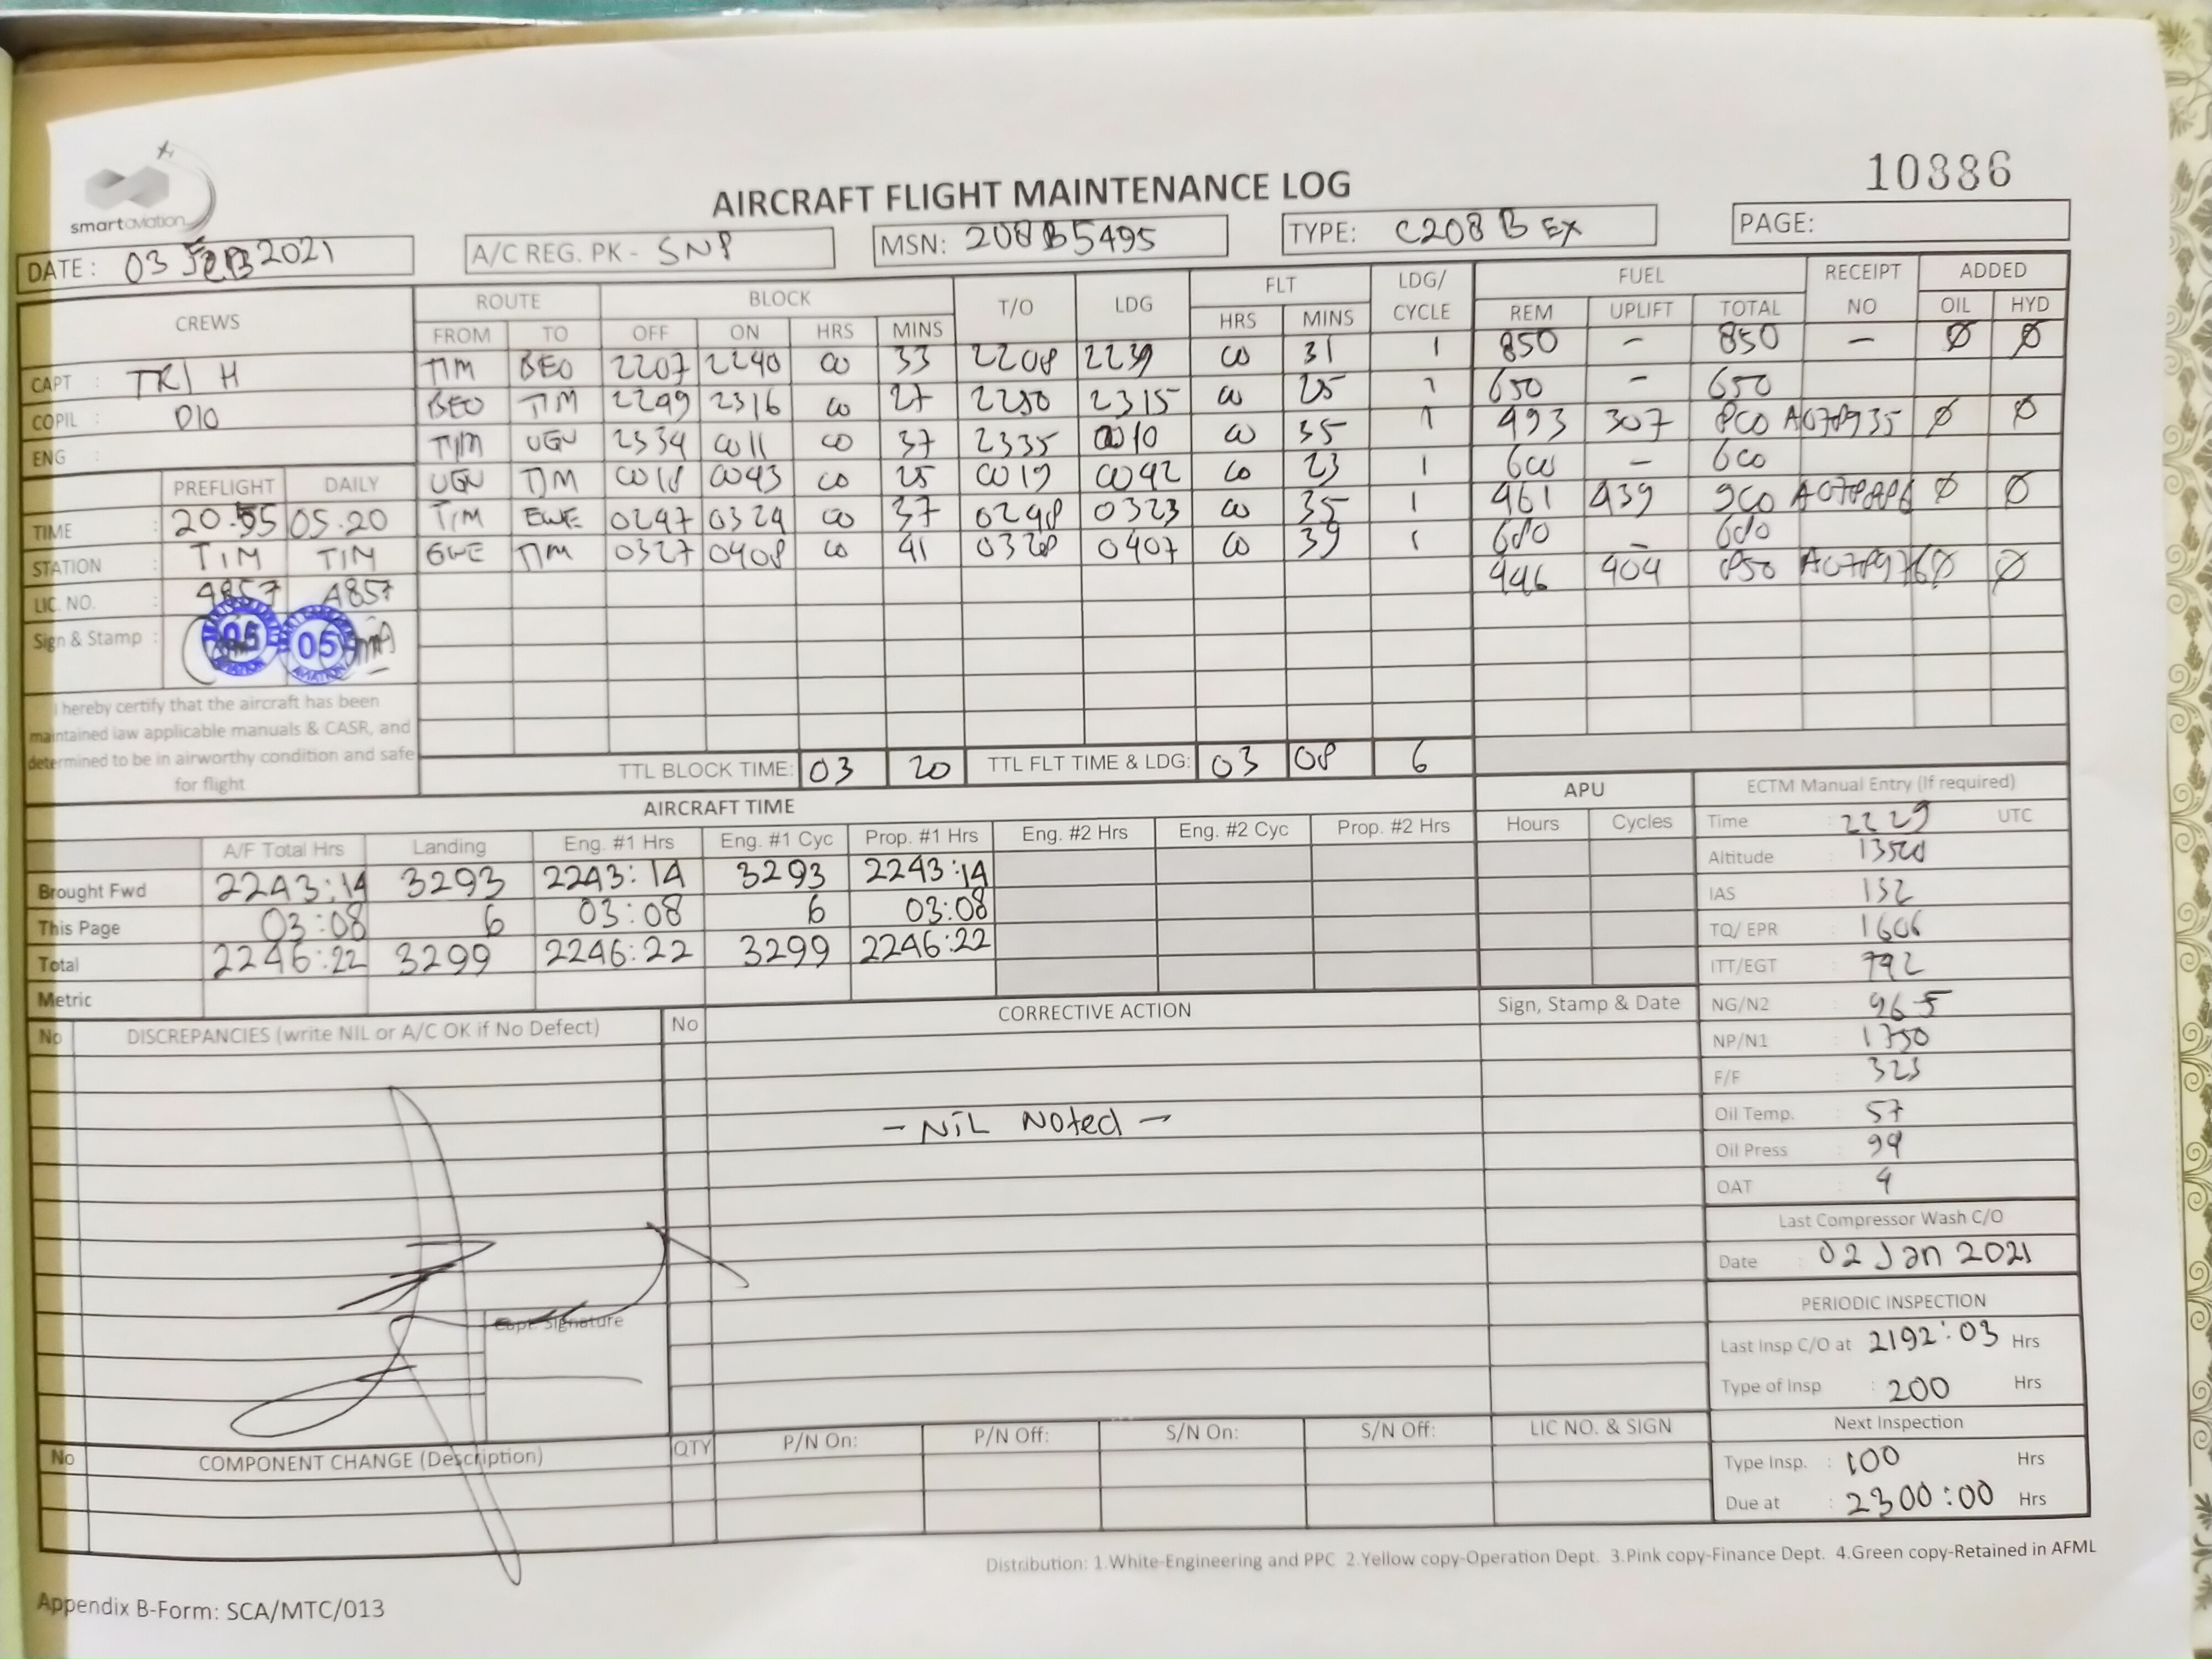 smartaviation
AIRCRAFT FLIGHT MAINTENANCE LOG
10886
DATE : 03 FEB 2021
A/C REG. PK - SNP
MSN: 208B5495
TYPE: C208 B EX
PAGE:
CREWS ROUTE BLOCK T/O LDG FLT LDG/ CYCLE FUEL RECEIPT NO ADDED
FROM TO OFF ON HRS MINS HRS MINS REM UPLIFT TOTAL OIL HYD
TIM BEO 2207 2240 00 33 2208 2239 00 31 1 850 - 850 - Ø Ø
CAPT : TRI H
BEO TIM 2249 2316 00 27 2250 2315 00 25 1 650 - 650
COPIL : DIO
TIM UGU 2334 0011 00 37 2335 0010 00 35 1 493 307 800 Ø Ø
ENG :
UGU TIM 0018 0043 00 25 0019 0042 00 23 1 600 - 600
PREFLIGHT DAILY
TIM EWE 0247 0324 00 37 0248 0323 00 35 1 461 439 900 Ø Ø
TIME : 20.55 05.20
EWE TIM 0327 0408 00 41 0328 0407 00 39 1 680 - 680
STATION : TIM TIM
446 404 850 Ø Ø
LIC. NO. : 4857 4857
Sign & Stamp :
05 05
AVIATION
I hereby certify that the aircraft has been
maintained iaw applicable manuals & CASR, and
determined to be in airworthy condition and safe
for flight
TTL BLOCK TIME: 03 20 TTL FLT TIME & LDG: 03 08 6
AIRCRAFT TIME APU
A/F Total Hrs Landing Eng. #1 Hrs Eng. #1 Cyc Prop. #1 Hrs Eng. #2 Hrs Eng. #2 Cyc Prop. #2 Hrs Hours Cycles
Brought Fwd 2243:14 3293 2243:14 3293 2243:14
This Page 03:08 6 03:08 6 03:08
Total 2246:22 3299 2246:22 3299 2246:22
Metric
ECTM Manual Entry (If required)
Time : 2229 UTC
Altitude : 13500
IAS : 132
TQ/ EPR : 1606
ITT/EGT : 792
NG/N2 : 96.5
NP/N1 : 1750
F/F : 323
Oil Temp. : 57
Oil Press : 99
OAT : 4
Last Compressor Wash C/O
Date : 02 Jan 2021
PERIODIC INSPECTION
Last Insp C/O at 2192:03 Hrs
Type of Insp : 200 Hrs
Next Inspection
Type Insp. : 100 Hrs
Due at : 2300:00 Hrs
No DISCREPANCIES (write NIL or A/C OK if No Defect) No CORRECTIVE ACTION Sign, Stamp & Date
- NiL Noted -
Capt. Signature
No COMPONENT CHANGE (Description) QTY P/N On: P/N Off: S/N On: S/N Off: LIC NO. & SIGN
Distribution: 1.White-Engineering and PPC 2.Yellow copy-Operation Dept. 3.Pink copy-Finance Dept. 4.Green copy-Retained in AFML
Appendix B-Form: SCA/MTC/013